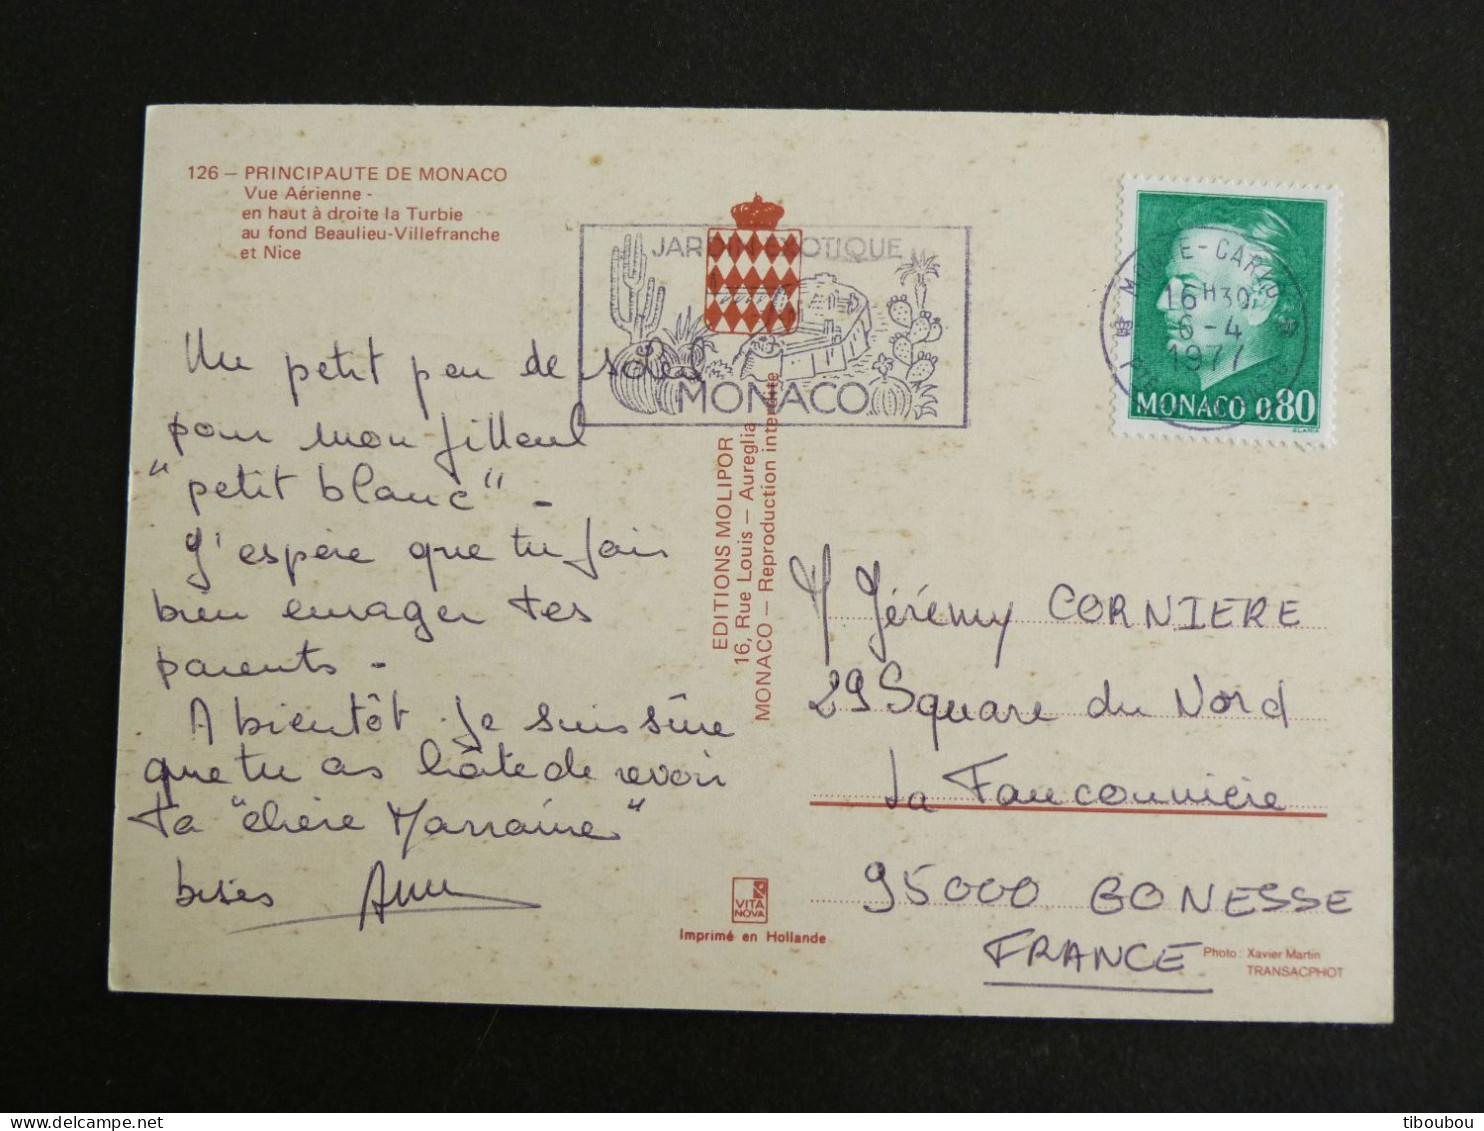 126 – PRINCIPAUTE DE MONACO
Vue Aérienne -
en haut à droite la Turbie
au fond Beaulieu-Villefranche
et Nice
JARDIN EXOTIQUE
MONACO
MONTE-CARLO
16H30
6-4
1977
MONACO 0,80
Un petit peu de soleil
pour mon filleul
"petit blanc" -
J'espère que tu fais
bien enrager tes
parents -
A bientôt. Je suis sûre
que tu as hâte de revoir
ta "chère Marraine"
bises Anne
EDITIONS MOLIPOR
16, Rue Louis – Aureglia
MONACO – Reproduction interdite
M Jérémy CORNIERE
29 Square du Nord
La Fauconnière
95000 GONESSE
FRANCE
VITA
NOVA
Imprimé en Hollande
Photo : Xavier Martin
TRANSACPHOT
tiboubou